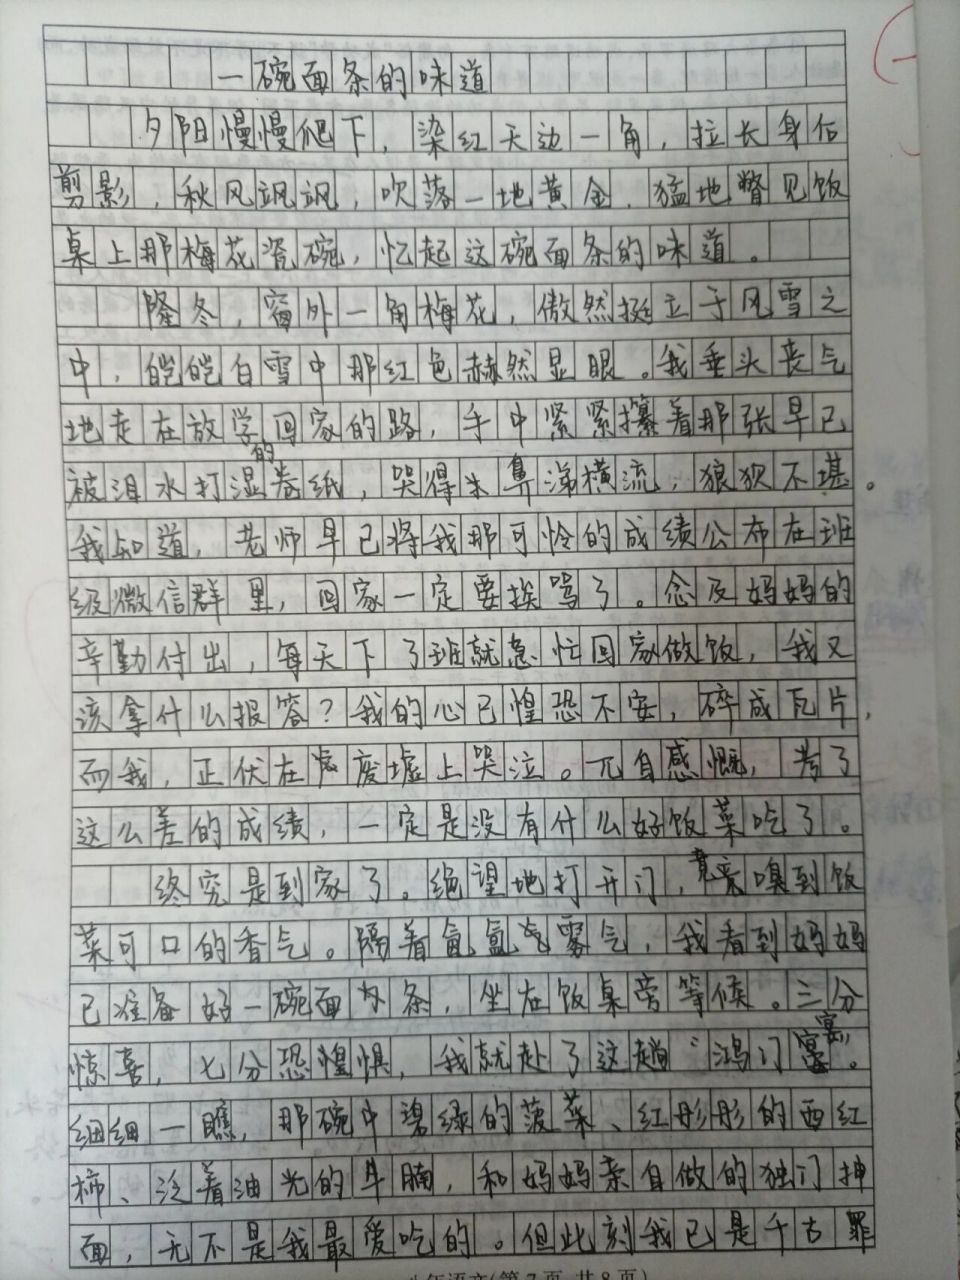 一碗面条的味道
夕阳慢慢爬下，染红天边一角，拉长身后
剪影，秋风飒飒，吹落一地黄金，猛地瞥见饭
桌上那梅花瓷碗，忆起这碗面条的味道。
隆冬，窗外一角梅花，傲然挺立于风雪之
中，皑皑白雪中那红色赫然显眼。我垂头丧气
地走在放学回家的路，手中紧紧攥着那张早已
被泪水打湿的卷纸，哭得牛鼻涕横流，狼狈不堪。
我知道，老师早已将我那可怜的成绩公布在班
级微信群里，回家一定要挨骂了。念及妈妈的
辛勤付出，每天下了班就急忙回家做饭，我又
该拿什么报答？我的心已惶恐不安，碎成瓦片，
而我，正伏在废墟上哭泣。兀自感慨，考了
这么差的成绩，一定是没有什么好饭菜吃了。
终究是到家了。绝望地打开门，竟嗅到饭
菜可口的香气。隔着氤氲雾气，我看到妈妈
已准备好一碗面条，坐在饭桌旁等候。三分
惊喜，七分恐惶惧，我就赴了这趟“鸿门宴”。
细细一瞧，那碗中碧绿的菠菜、红彤彤的西红
柿、泛着油光的牛腩，和妈妈亲自做的独门抻
面，无不是我最爱吃的。但此刻我已是千古罪
八年语文(第7页 共8页)